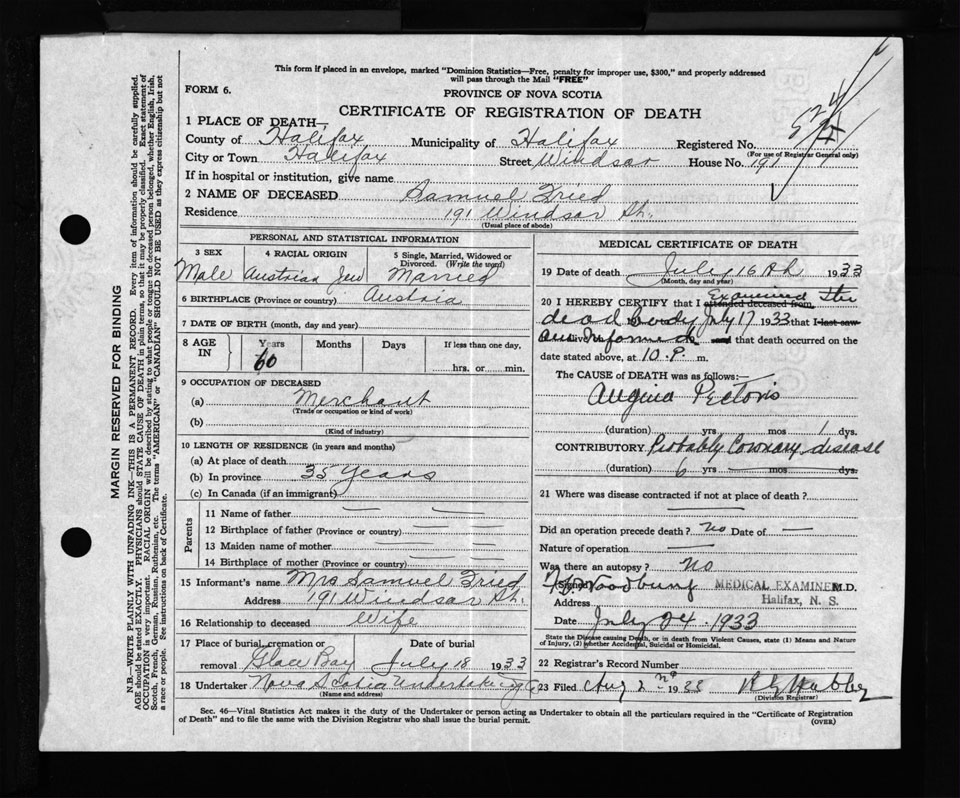 This form if placed in an envelope, marked "Dominion Statistics—Free, penalty for improper use, $300," and properly addressed
will pass through the Mail "FREE"
FORM 6.
PROVINCE OF NOVA SCOTIA
CERTIFICATE OF REGISTRATION OF DEATH
1 PLACE OF DEATH—
County of Halifax Municipality of Halifax Registered No.
(For use of Registrar General only)
City or Town Halifax Street Windsor House No. 191
If in hospital or institution, give name
2 NAME OF DECEASED Samuel Fried
Residence 191 Windsor St.
(Usual place of abode)
PERSONAL AND STATISTICAL INFORMATION
3 SEX 4 RACIAL ORIGIN 5 Single, Married, Widowed or
Divorced. (Write the word)
Male Austrian Jew Married
6 BIRTHPLACE (Province or country) Austria
7 DATE OF BIRTH (month, day and year)
8 AGE IN Years Months Days If less than one day,
60 hrs. or min.
9 OCCUPATION OF DECEASED
(a) Merchant
(Trade or occupation or kind of work)
(b)
(Kind of industry)
10 LENGTH OF RESIDENCE (in years and months)
(a) At place of death
(b) In province 35 Years
(c) In Canada (if an immigrant)
Parents
11 Name of father —
12 Birthplace of father (Province or country) —
13 Maiden name of mother —
14 Birthplace of mother (Province or country) —
15 Informant's name Mrs Samuel Fried
Address 191 Windsor St.
16 Relationship to deceased Wife
17 Place of burial, cremation or Date of burial
removal Glace Bay July 18 1933
18 Undertaker Nova Scotia Undertaking Co
(Name and address)
MEDICAL CERTIFICATE OF DEATH
19 Date of death July 16th 1933
(Month, day and year)
20 I HEREBY CERTIFY that I attended deceased from Examined the
dead body July 17 1933 that I last saw
am Informed and that death occurred on the
date stated above, at 10. P. m.
The CAUSE of DEATH was as follows:—
Angina Pectoris
(duration) yrs mos 1 dys.
CONTRIBUTORY Probably Coronary disease
(duration) 6 yrs mos dys.
21 Where was disease contracted if not at place of death?
Did an operation precede death? No Date of —
Nature of operation —
Was there an autopsy? No
(Signed) Woodbury MEDICAL EXAMINER M.D.
Address Halifax, N. S.
Date July 24 1933
State the Disease causing Death, or in death from Violent Causes, state (1) Means and Nature
of Injury, (2) whether Accidental, Suicidal or Homicidal.
22 Registrar's Record Number
23 Filed Aug 2nd 1933
(Division Registrar)
Sec. 46—Vital Statistics Act makes it the duty of the Undertaker or person acting as Undertaker to obtain all the particulars required in the "Certificate of Registration
of Death" and to file the same with the Division Registrar who shall issue the burial permit.
(OVER)
MARGIN RESERVED FOR BINDING
N.B.—WRITE PLAINLY WITH UNFADING INK—THIS IS A PERMANENT RECORD. Every item of information should be carefully supplied.
AGE should be stated EXACTLY. PHYSICIANS should STATE CAUSE OF DEATH in plain terms, so that it may be properly classified. Exact statement of
OCCUPATION is very important. RACIAL ORIGIN will be described by stating to what people or tongue the deceased person belonged, whether English, Irish,
Scotch, French, German, Russian, Ruthenian, etc. The terms "AMERICAN" or "CANADIAN" SHOULD NOT BE USED as they express citizenship but not
a race or people. See instructions on back of Certificate.